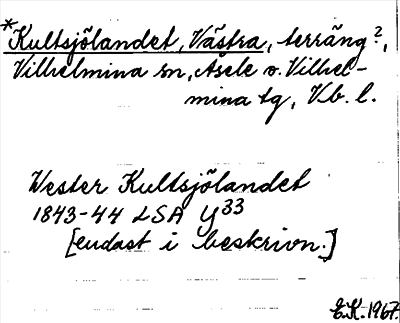 *Kultsjölandet, Västra, terräng?,
Vilhelmina sn, Åsele o. Vilhel-
mina tg, Vb. l.
Wester Kultsjölandet
1843-44 LSA Y33
[endast i beskrivn.]
E.K. 1967.